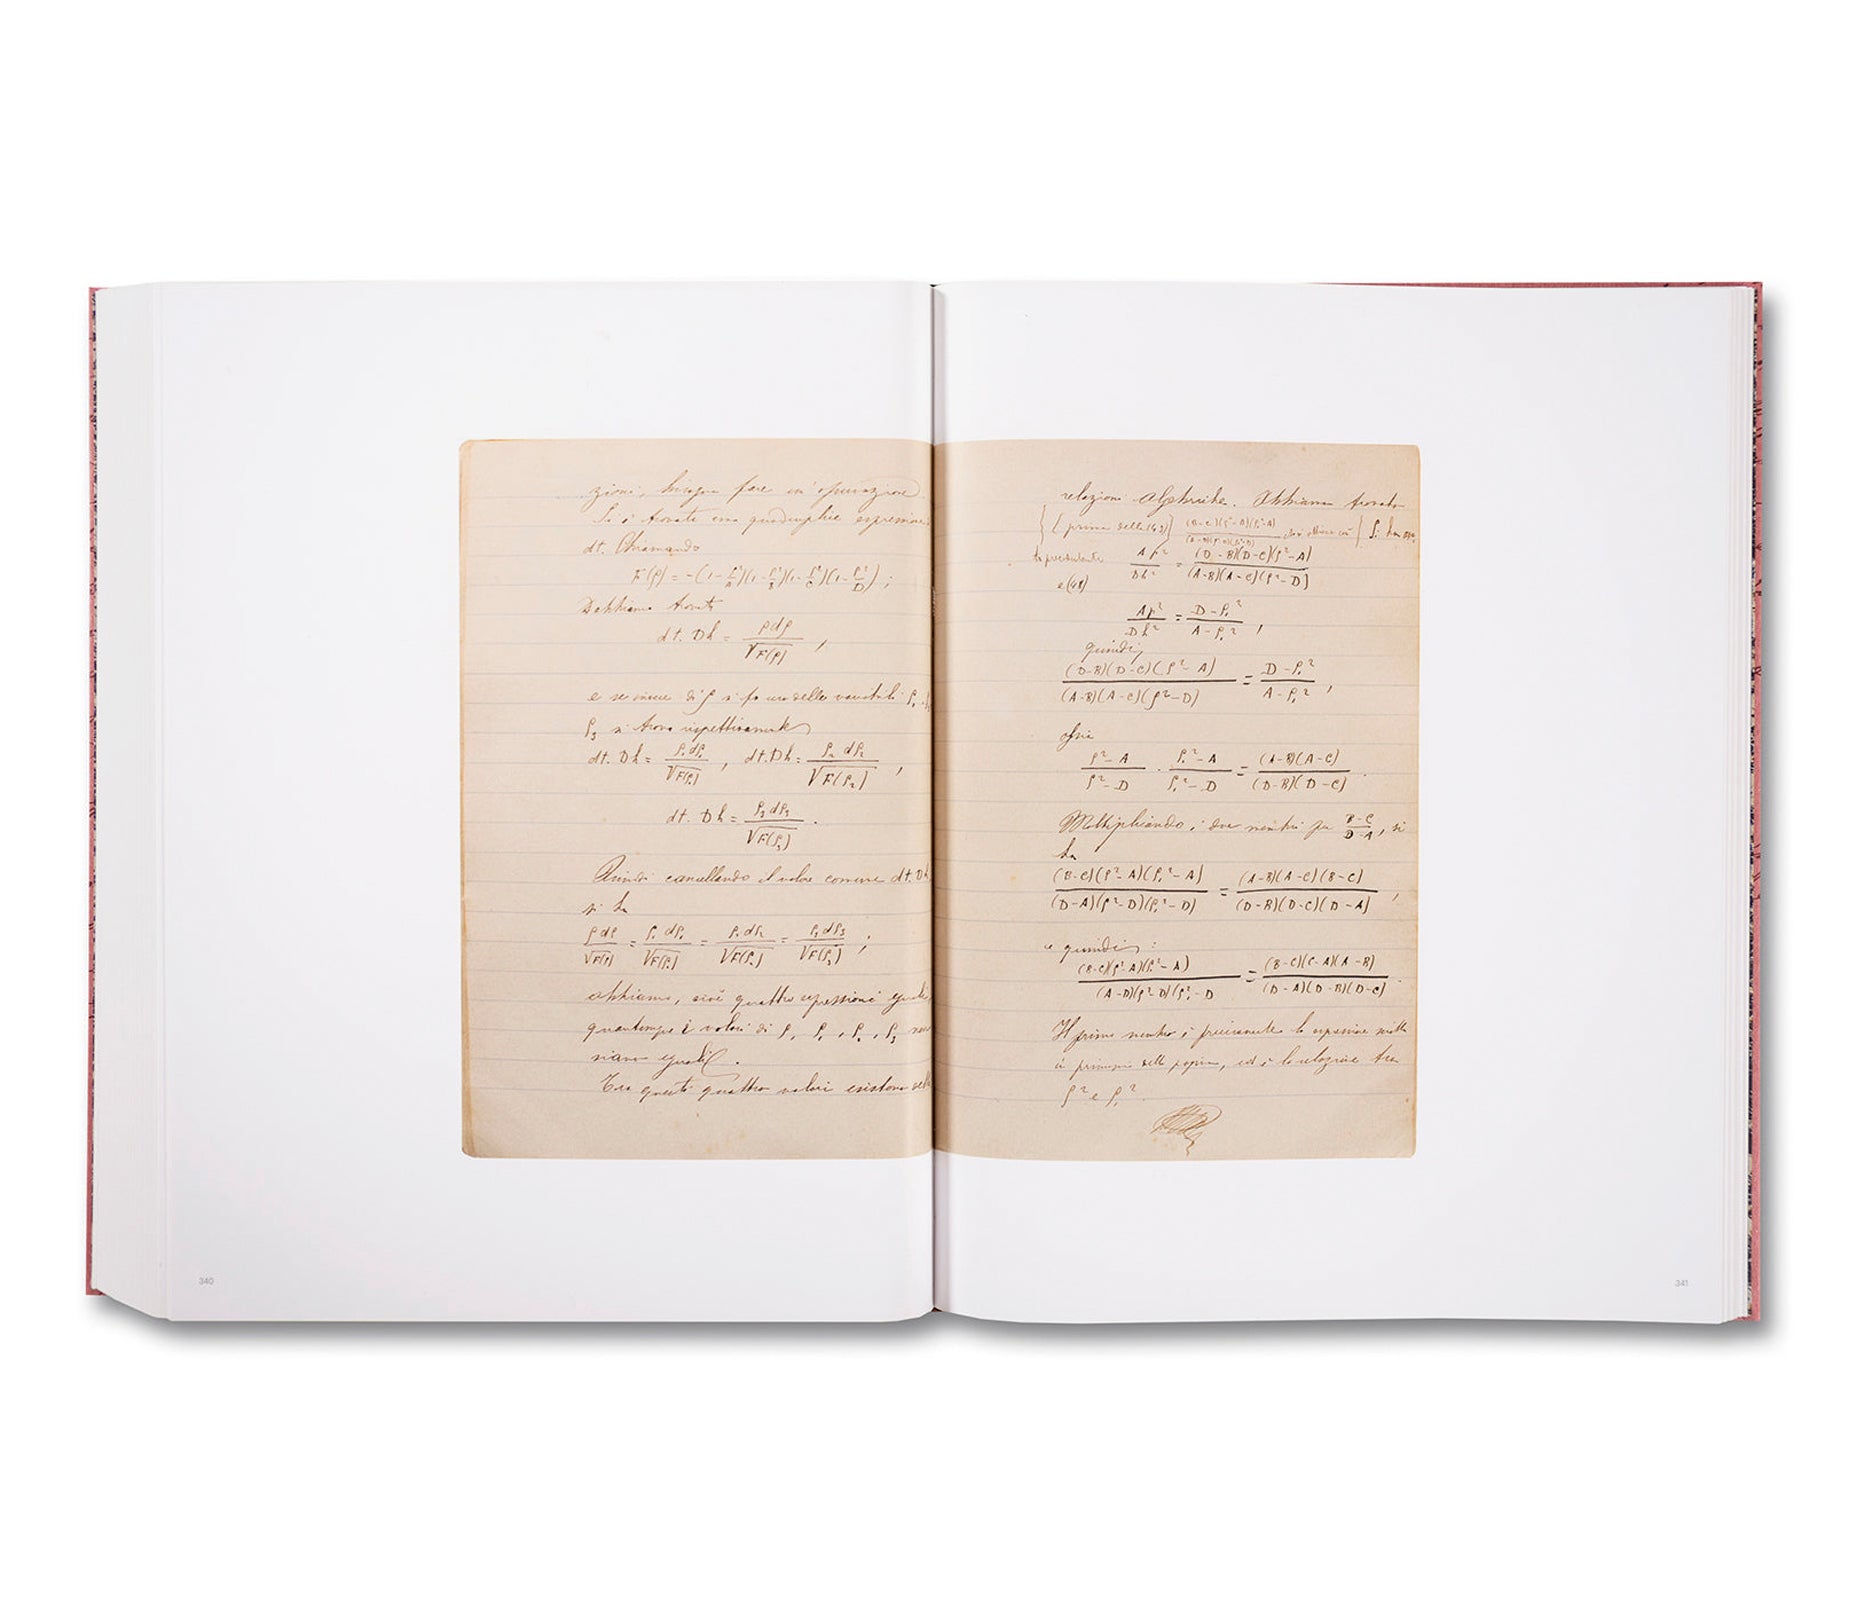 zioni, bisogna fare un' operazione.
Si è trovata una quadruplice espressione
dt. Chiamando
F(ρ) = -(1-ρ²/A)(1-ρ²/B)(1-ρ²/C)(1-ρ²/D);
abbiamo trovato
dt. Dh = ρdρ/√F(ρ),
e se invece di ρ si fa uno delle variabili ρ₁
ρ₃ si trova rispettivamente
dt. Dh = ρ₁dρ₁/√F(ρ₁), dt. Dh = ρ₂dρ₂/√F(ρ₂),
dt. Dh = ρ₃dρ₃/√F(ρ₃).
Quindi cancellando il valore comune dt. Dh
si ha
ρdρ/√F(ρ) = ρ₁dρ₁/√F(ρ₁) = ρ₂dρ₂/√F(ρ₂) = ρ₃dρ₃/√F(ρ₃);
abbiamo, cioè quattro espressioni eguali
quantunque i valori di ρ, ρ₁, ρ₂, ρ₃ non
siano eguali.
Tra questi quattro valori esistono delle
340
relazioni algebriche. Abbiamo trovato
{[prima delle (43)] (B-C)(ρ²-A)(ρ₁²-A)
Ap²/Dh² = (D-B)(D-C)(ρ²-A)/(A-B)(A-C)(ρ²-D)
e (48)
Ap²/Dh² = D-ρ₁²/A-ρ₁²,
quindi,
(D-B)(D-C)(ρ²-A)/(A-B)(A-C)(ρ²-D) = D-ρ₁²/A-ρ₁²,
ossia
ρ²-A/ρ²-D · ρ₁²-A/ρ₁²-D = (A-B)(A-C)/(D-B)(D-C).
Moltiplicando i due membri per B-C/D-A, si
ha
(B-C)(ρ²-A)(ρ₁²-A)/(D-A)(ρ²-D)(ρ₁²-D) = (A-B)(A-C)(B-C)/(D-B)(D-C)(D-A),
e quindi:
(B-C)(ρ²-A)(ρ₁²-A)/(A-D)(ρ²-D)(ρ₁²-D = (B-C)(C-A)(A-B)/(D-A)(D-B)(D-C).
Il primo membro è precisamente la espressione
in principio della pagina, ed è la relazione tra
ρ² e ρ₁².
341